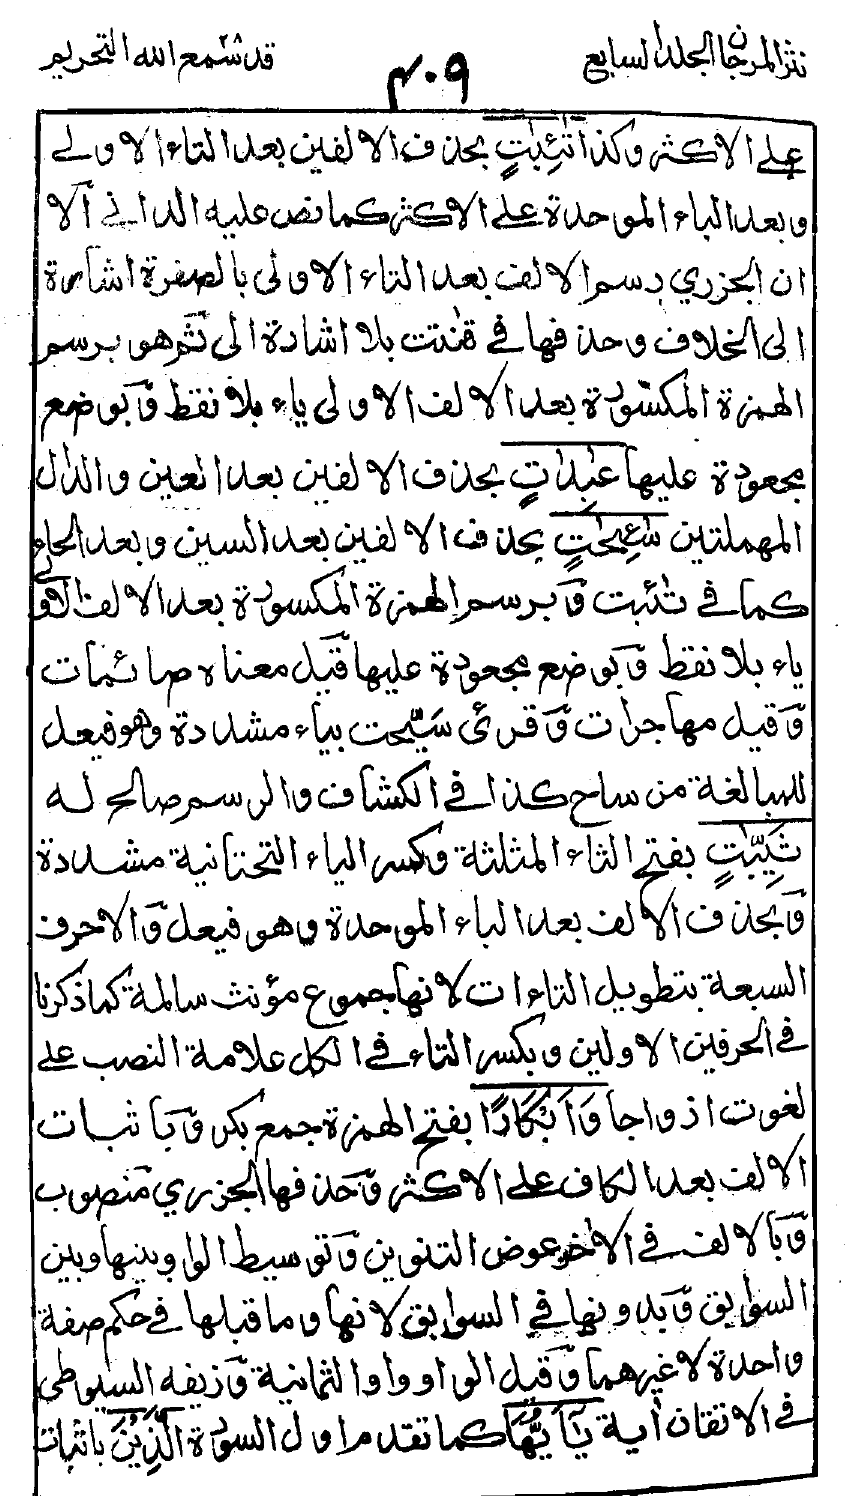 نثر المرجان الجلد السابع
٤٠٩
قد سمع الله ٢٨ التحريم
على الاكثر وكذا تٰئِبٰتٍ بحذف الالفين بعد التاء الاولى
وبعد الباء الموحدة على الاكثر كما نص عليه الداني الا
ان الجزري رسم الالف بعد التاء الاولى بالصفرة اشارة
الى الخلاف وحذفها في قنٰتت بلا اشارة الى ثم هو برسم
الهمزة المكسورة بعد الالف الاولى ياء بلا نقط وبوضع
مجعودة عليها عٰبِدٰتٍ بحذف الالفين بعد العين والدال
المهملتين سٰئِحٰتٍ بحذف الالفين بعد السين وبعد الحاء
كما في تٰئبت وبرسم الهمزة المكسورة بعد الالف الاولى
ياء بلا نقط وبوضع مجعودة عليها قيل معناه صائمات
وقيل مهاجرات وقرئ سَيّحت بياء مشددة وهو فيعل
للمبالغة من ساح كذا في الكشاف والرسم صالح له
ثَيِّبٰتٍ بفتح الثاء المثلثة وكسر الياء التحتانية مشددة
وبحذف الالف بعد الباء الموحدة وهو فيعل والاحرف
السبعة بتطويل التاءات لانها جموع مؤنث سالمة كما ذكرنا
في الحرفين الاولين وبكسر التاء في الكل علامة النصب على
لغوت ازواجا وَاَبْكَارًا بفتح الهمزة جمع بكر وباثبات
الالف بعد الكاف على الاكثر وحذفها الجزري منصوب
وبالالف في الاٰخر عوض التنوين وتوسيط الواو بينها وبين
السوابق وبدونها في السوابق لانها وما قبلها في حكم صفة
واحدة لا غيرهما وقيل الواو واو الثمانية وزيفه السيوطي
في الاتقان اٰية يٰٓاَيُّهَا كما تقدم اول السورة الَّذِيْنَ باثبات